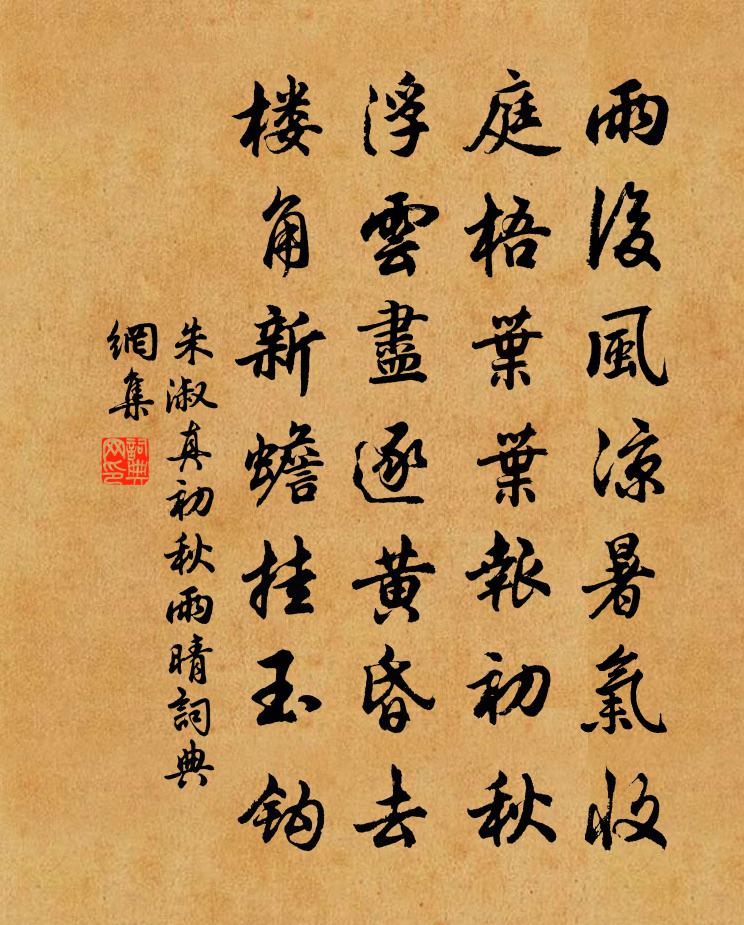 雨後風涼暑氣收
庭梧葉葉報初秋
浮雲盡逐黄昏去
楼角新蟾挂玉鈎
朱淑真初秋雨晴詞典
網集
詞典
网印